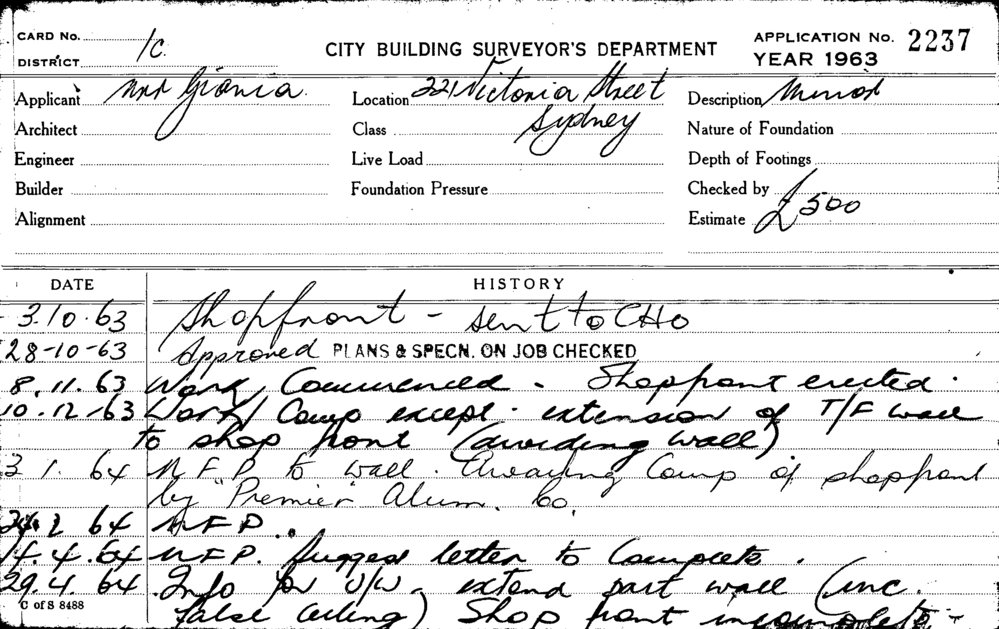 CARD No. 1c.
DISTRICT
CITY BUILDING SURVEYOR'S DEPARTMENT
APPLICATION No. 2237
YEAR 1963
Applicant Giania
Location 221 Victoria Street
Sydney
Description Minor
Architect
Class
Nature of Foundation
Engineer
Live Load
Depth of Footings
Builder
Foundation Pressure
Checked by
Alignment
Estimate £500
DATE HISTORY
3.10.63 Shopfront - sent to CHO
28-10-63 Approved PLANS & SPECN. ON JOB CHECKED
8.11.63 Work Commenced - Shopfront erected.
10.12.63 Work Comp except. extension of T/F wall
to shop front (dividing wall)
3 1. 64 N.F.P. to wall. Awaiting Comp of shopfront
by "Premier" Alum. Co.
24.2 64 N F P.
14.4.64 N.F.P. Suggest letter to Complete.
29.4.64 Info for U/W. extend part wall (inc.
false ceiling) Shop front incomplete -
C of S 8488